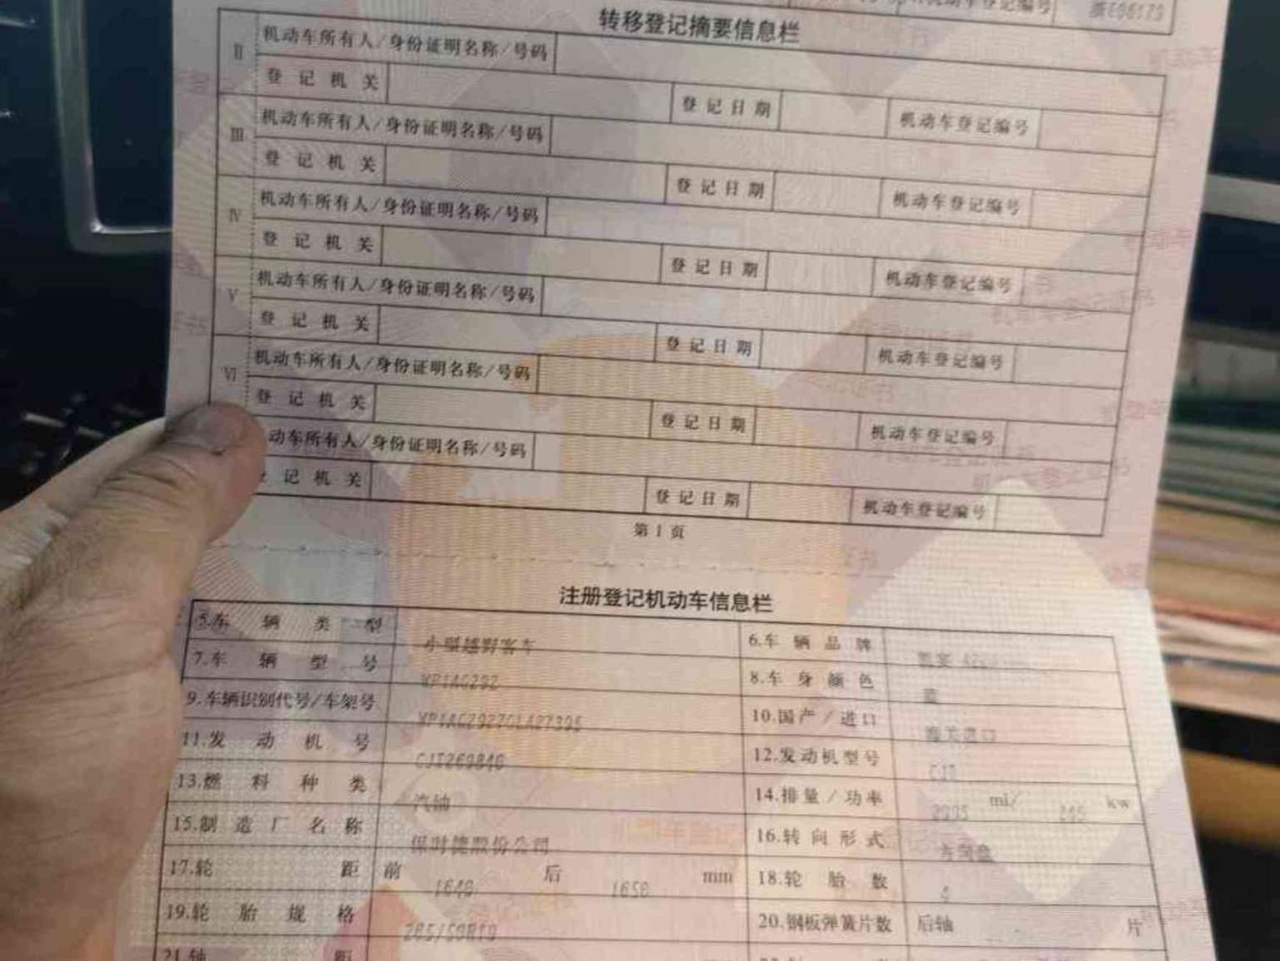 机动车登记编号
转移登记摘要信息栏
II 机动车所有人/身份证明名称/号码
登记机关 登记日期 机动车登记编号
III 机动车所有人/身份证明名称/号码
登记机关 登记日期 机动车登记编号
IV 机动车所有人/身份证明名称/号码
登记机关 登记日期 机动车登记编号
V 机动车所有人/身份证明名称/号码
登记机关 登记日期 机动车登记编号
VI 机动车所有人/身份证明名称/号码
登记机关 登记日期 机动车登记编号
动车所有人/身份证明名称/号码
登记机关 登记日期 机动车登记编号
第1页
注册登记机动车信息栏
5.车辆类型 小型越野客车 6.车辆品牌
7.车辆型号 WP1AG292 8.车身颜色 蓝
9.车辆识别代号/车架号 10.国产/进口 海关进口
11.发动机号 12.发动机型号 CJT
13.燃料种类 汽油 14.排量/功率 2995 ml/ kw
15.制造厂名称 保时捷股份公司 16.转向形式 方向盘
17.轮距 前 1640 后 1650 mm 18.轮胎数 4
19.轮胎规格 265/50R19 20.钢板弹簧片数 后轴 片
21.轴距